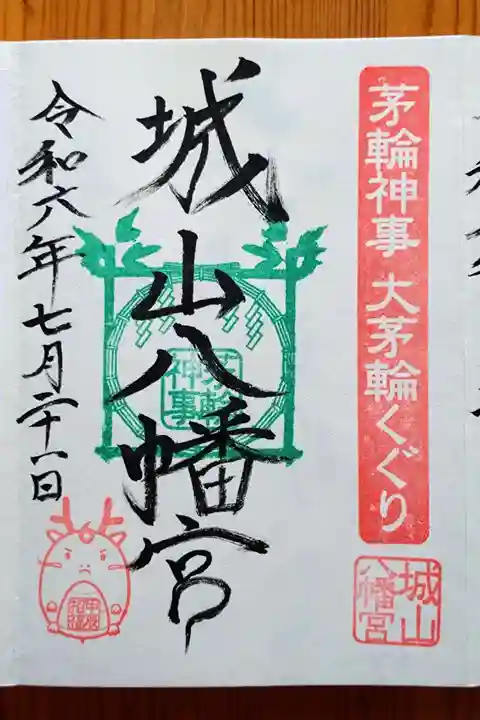 茅輪神事 大茅輪くぐり
城山
八幡宮
城山八幡宮
茅輪
神事
令和六年七月二十一日